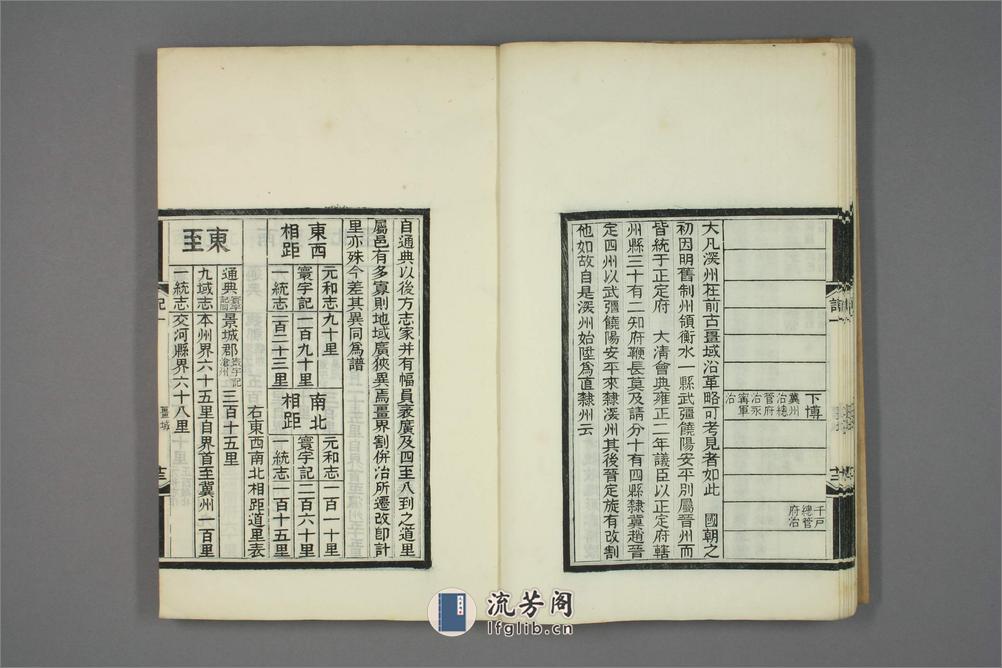 下博
冀州
治總
管府
治永
寧軍
治
千戸
總管
府治
大凡深州在前古畺域沿革略可考見者如此 國朝之
初因明舊制州領衡水一縣武彊饒陽安平別屬晉州而
皆統于正定府 大清會典雍正二年議臣以正定府轄
州縣三十有二知府鞭長莫及請分十有四縣隸冀趙晉
定四州以武彊饒陽安平來隸深州其後晉定旋有改割
他如故自是深州始陞爲直隸州云
自通典以後方志家并有幅員袤廣及四至八到之道里
屬邑有多寡則地域廣狹異焉畺界割併治所遷改卽計
里亦殊今差其異同爲譜
東西相距
元和志九十里
寰宇記一百九十里
一統志一百二十三里
南北相距
元和志一百一十里
寰宇記二百六十里
一統志一百一十五里
右東西南北相距道里表
東至
通典寰宇記同景城郡寰宇記滄州三百十五里
九域志本州界六十五里自界首至冀州一百里
一統志交河縣界六十八里
記一
畺域
譜一
流芳阁
lfglib.cn